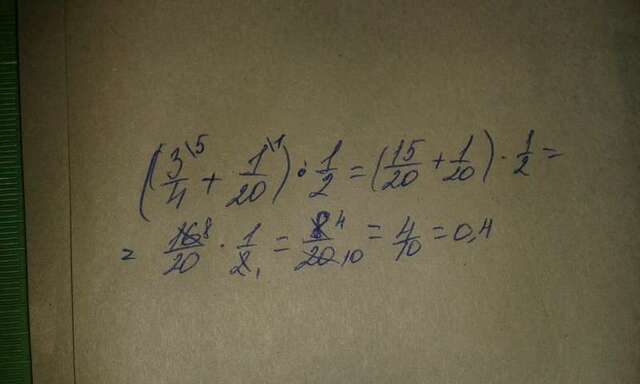 (3\5/4 + 1\1/20) · 1/2 = (15/20 + 1/20) · 1/2 =
= 16 8/20 · 1/2 1 = 8 4/20 10 = 4/10 = 0,4